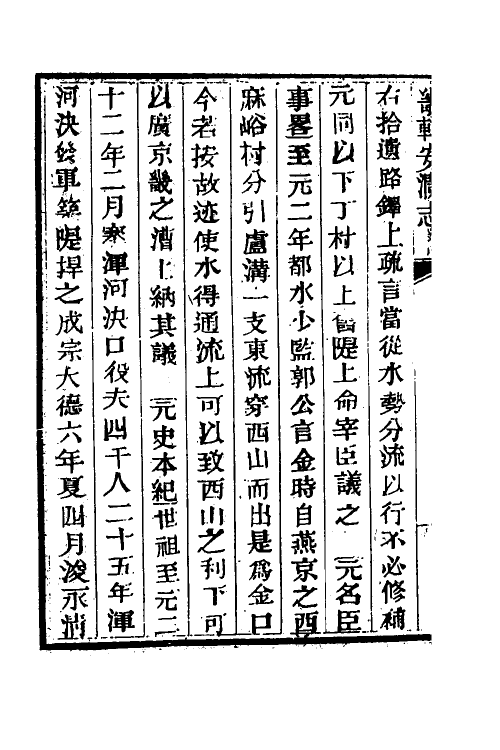 畿輔安瀾志
右拾遺路鐸上疏言當從水勢分流以行不必修補
元同以下丁村以上舊隄上命宰臣議之　元名臣
事畧至元二年都水少監郭公言金時自燕京之西
麻峪村分引盧溝一支東流穿西山而出是爲金口
今若按故迹使水得通流上可以致西山之利下可
以廣京畿之漕上納其議　元史本紀世祖至元二
十二年二月塞渾河決口役夫四千人二十五年渾
河決發軍築隄捍之成宗大德六年夏四月浚永清